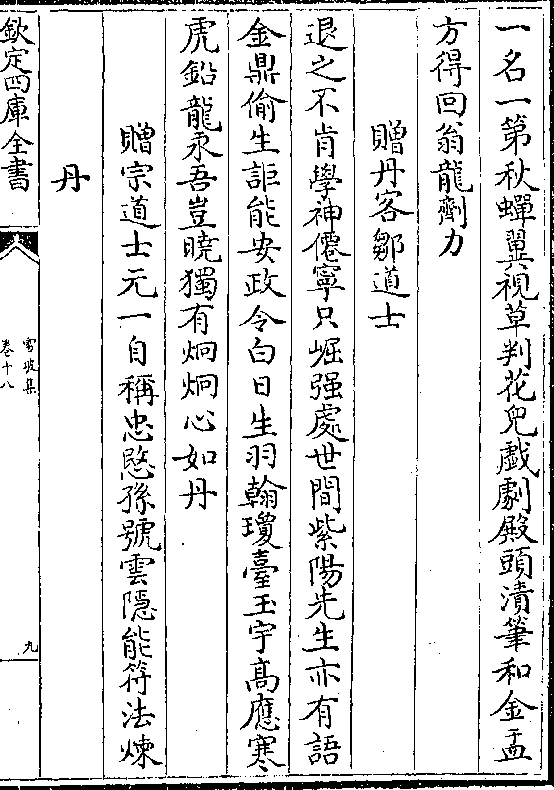 一名一第秋蟬翼視草判花兒戲劇殿頭漬筆和金盂
方得回翁龍劑力
贈丹客鄒道士
退之不肯學神僊寧只崛强處世間紫陽先生亦有語
金鼎偷生詎能安政令白日生羽翰瓊臺玉宇高應寒
虎鉛龍汞吾豈曉獨有炯炯心如丹
贈宗道士元一自稱忠愍孫號雲隱能符法煉
丹
欽定四庫全書
雪坡集
卷十八
九